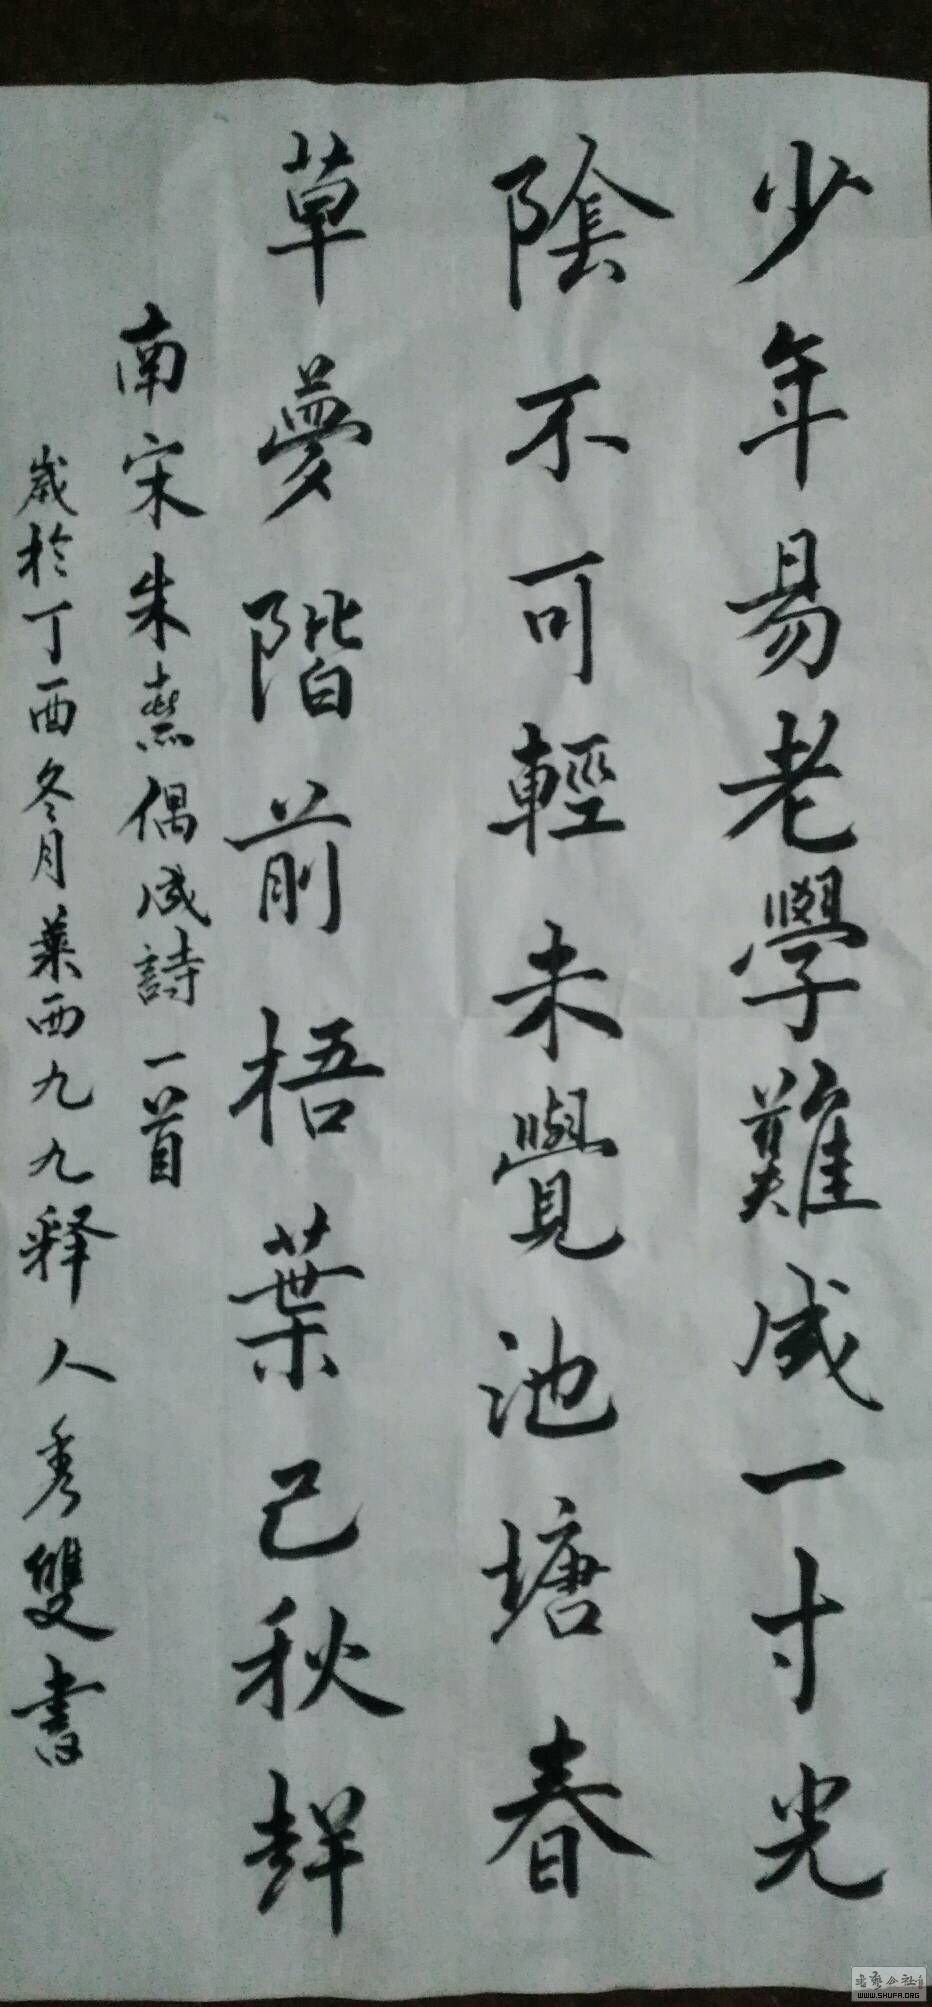 少年易老學難成一寸光
陰不可輕未覺池塘春
草夢階前梧葉已秋聲
南宋朱熹偶成詩一首
歲於丁酉冬月萊西九九释人秀雙書
WWW.SHUFA.ORG